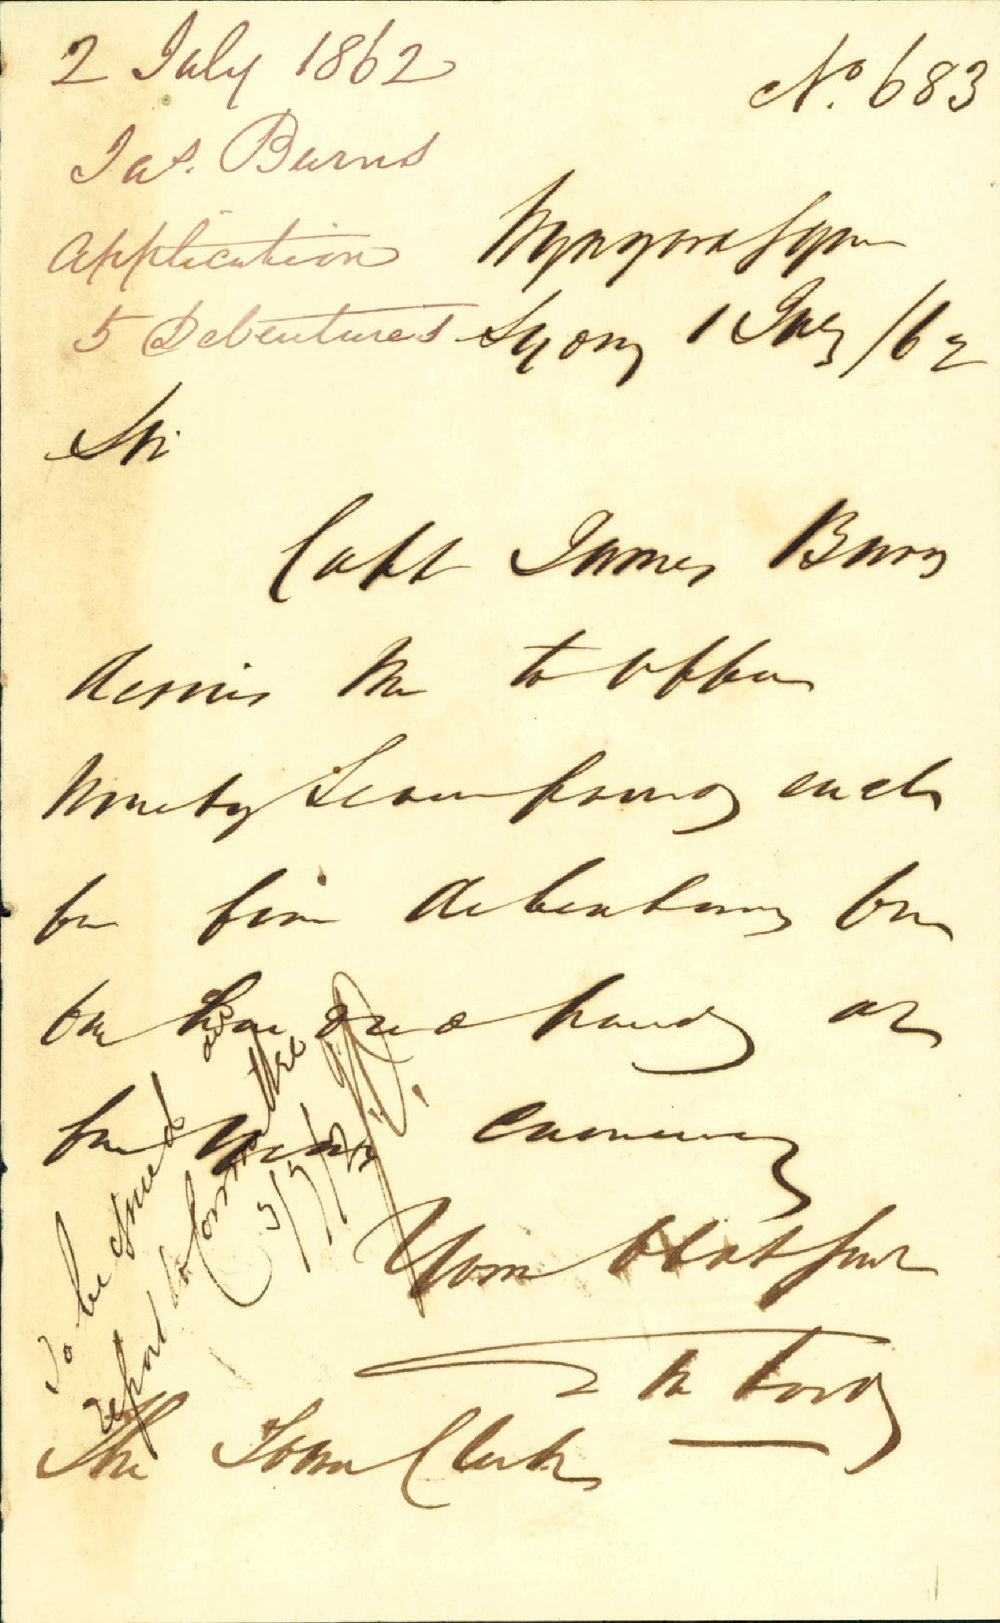 2 July 1862
No. 683
Jas. Burns
Application
5 Debentures
Wynyard Square
Sydney 1 July /62
Sir
Capt James Burns
desires me to offer
Ninety Seven pounds each
for five debentures for
one hundred
for currency
Your Obdt Servt
The Town Clerk
To be opened
report to Committee
3/7/62